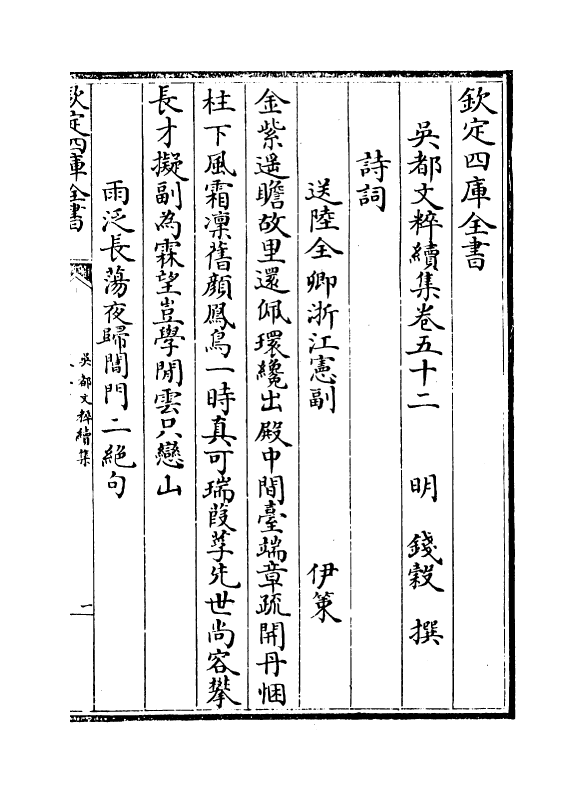 欽定四庫全書
吳都文粹續集卷五十二 明 錢穀 撰
詩詞
送陸全卿浙江憲副 伊策
金紫遥瞻故里還佩環纔出殿中間臺端章疏開丹悃
柱下風霜凛舊顔鳳鳥一時真可瑞葭莩先世尚容攀
長才擬副為霖望豈學閒雲只戀山
雨泛長蕩夜歸閶門二絶句
欽定四庫全書
吳都文粹續集
一